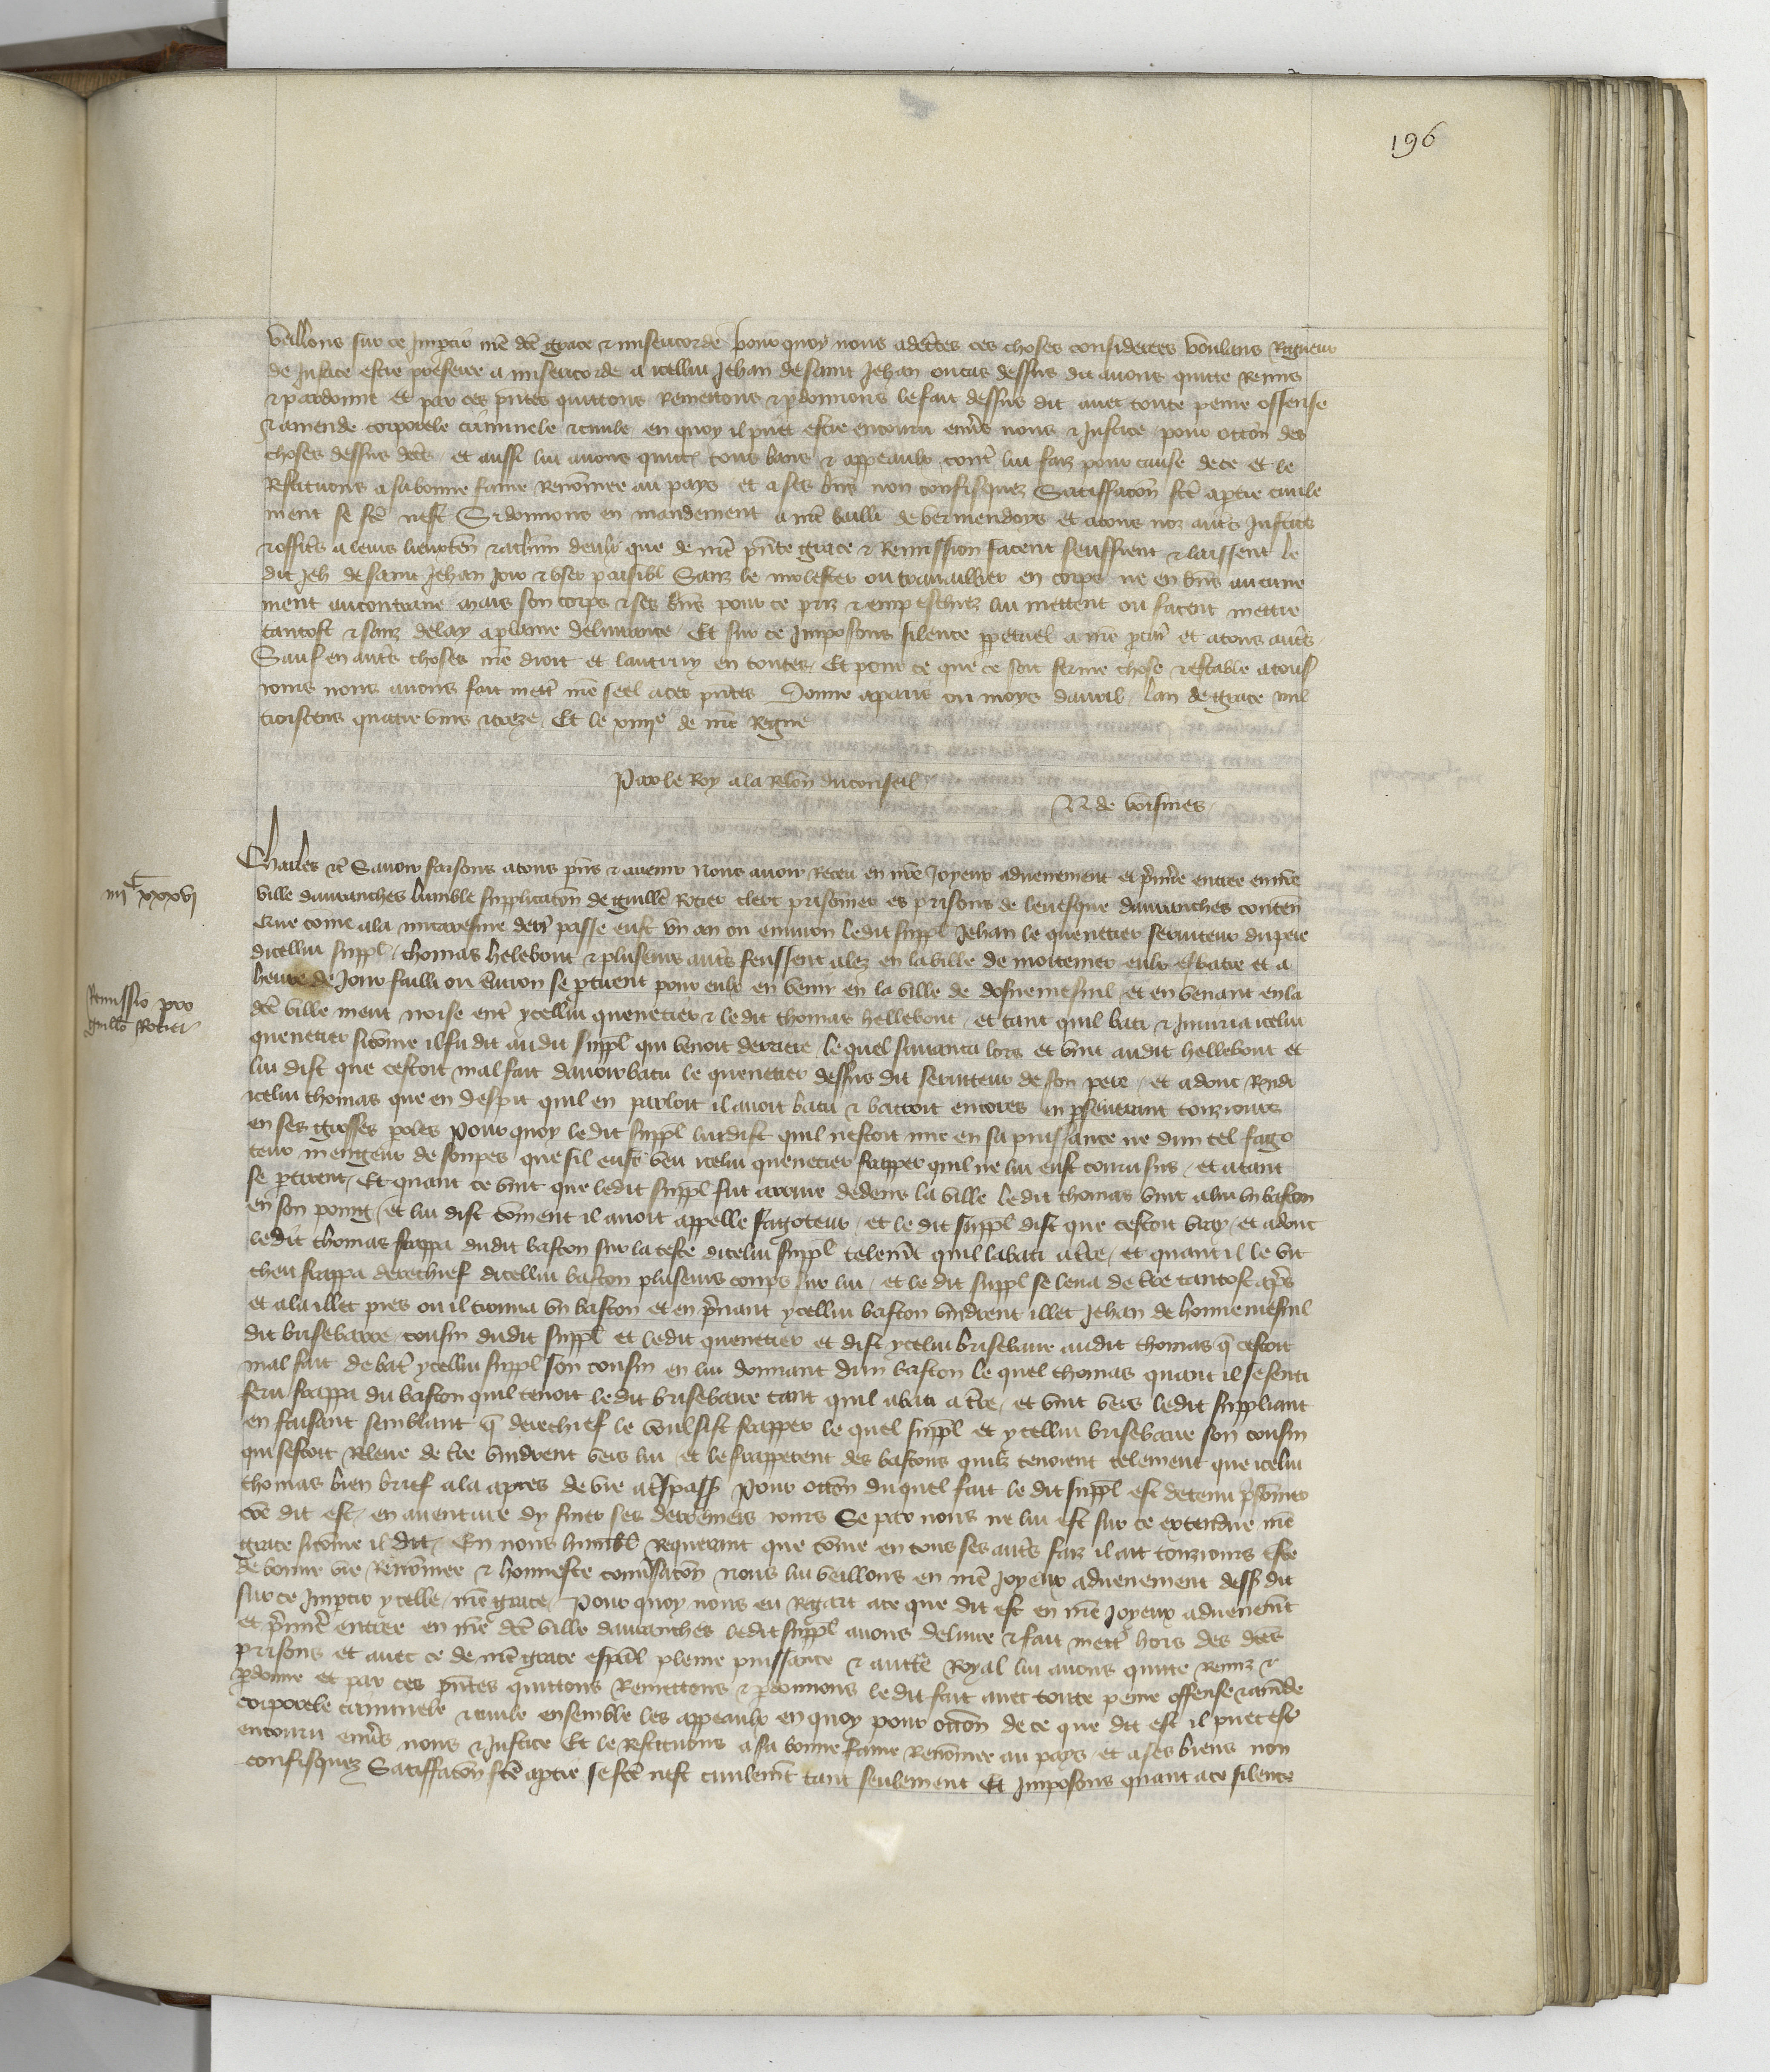 196
veillons sur ce impartir nre dce grace & misericorde Pour quoy nous adcertes ces choses considerees voulans Rigueur
de Justice estre preferer a misericorde a icellui Jehan de saint Jehan ou cas dessus dit avons quitte Remis
& pardonne et par ces pntes quittons Remettons & pdonnons le fait dessus dit avec toute peine offense
& amende corporele criminele & civile en quoy il puet estre encouru envs nous & Justice pour occon des
choses dessus dces et aussi lui avons quict tous bans & appeaulx contr lui faiz pour cause de ce et le
Restituons a sa bonne fame Renomee au pays et a ses bns non confisquez Satisffacon fce a ptie civile
ment se fce nest Si donnons en mandement a nre bailli de Vermendoys et a tous noz autrs Justiciers
& officrs a leurs lieuxten & a chun deulx que de nre pnte grace & Remission facent seuffrent & laissent le
dit Jeh de saint Jehan Joir & user paisibl Sanz le molester ou travaillier en corps ne en bns aucune
ment au contraire mais son corps & ses bns pour ce priz & empeschiez lui mettent ou facent mettre
tantost & sanz delay a plaine delivrance Et sur ce imposons silence ppetuel a nre pcur et a tous autrs
Sauf en autrs choses nre droit et lautruy en toutes Et pour ce que ce soit ferme chose & estable a tous
iours nous avons fait mettr nre seel a ces pntes Donne a paris ou moys davril lan de grace mil
troiscens quatre vins & treze Et le xiiiie de nre Regne
Par le Roy a la Relon du conseil
N. de Voisines
iiiic xxxvi
Charles &c Savoir faisons a tous pns & avenir Nous avoir Receu en nre Joyeux advenement et pmiere entree en nre
ville davranches lumble supplicacon de guille Rotier clerc prisonnier es prisons de levesque davranches conten
Que come a la micaresme derr passe eust un an ou environ ledit suppl Jehan le quenetier serviteur du pere
dicellui suppl thomas hellebout & plusieurs autrs feussent alez en la ville de mortemer eulx esbatre et a
heure de Jour failli ou environ se ptirent pour eulx en venir en la ville de et en venant en la
Remissio pro
guillo Rotier
dce ville meut noise entr ycellui quenetier & ledit thomas hellebout et tant quil bati & iniuria icelui
quenetier si come il fu dit audit suppl qui venoit derriere lequel savanca lors et vint audit hellebout et
lui dist que cestoit mal fait davoir batu le quenetier dessus dit serviteur de son pere et adonc Rndi
icelui thomas que en despit quil en parloit il avoit batu & batroit encores en pseverant tousiours
en ses grosses poles Pour quoy ledit suppl lui dist quil nestoit mie en sa puissance ne dun tel fago
teur mengeur de soupes que sil eust veu icelui quenetier frapper quil ne lui eust couru sus et atant
se ptirent Et quant ce vint que ledit suppl fut arrive dedens la ville ledit thomas vint a lui un baston
en son poing et lui dist coment il avoit appelle fagoteur et ledit suppl dist que cestoit vray et adonc
ledit thomas frappa dudit baston sur la teste dicelui suppl telemt quil labati a tre et quant il le vit
cheu frappa derechief dicellui baston plusieurs coups sur lui et le dit suppl se leva de tre tantost apres
et ala illec pres ou il trouva un baston et en pnant ycellui baston vindrent illec Jehan de
dit brisebarre cousin dudit suppl et ledit quenetier et dist ycelui brisebarre audit thomas q cestoit
mal fait de batr ycellui suppl son cousin en lui donnant dun baston le quel thomas quant il se senti
feru frappa du baston quil tenoit le dit brisebarre tant quil abati a tre et vint vers ledit suppliant
en faisant semblant q derechief le voulsist frapper le quel suppl et ycellui brisebarre son cousin
qui sestoit Releve de tre vindrent vers lui et le frapperent des bastons quilz tenoient telement que icelui
thomas bien brief ala apres de vie a trespass Pour occon du quel fait le dit suppl est detenu prisonnier
coe dit est en aventure dy finer ses derreniers iours Se par nous ne lui est sur ce extendue nre
grace si come il dit En nous humbl Requerant que come en tous ses autrs faiz il ait tousiours este
de bonne vie Renomee & honneste conversacon nous lui veillons en nre Joyeux advenement dess dit
sur ce impartir ycelle nre grace Pour quoy nous eu Regart a ce que dit est en nre Joyeux advenemt
et pmiere entree en nre dce ville davranches ledit suppl avons delivre & fait mettr hors des dces
prisons et avec ce de nre grace espal pleine puissance & auttē Royal lui avons quitte Remiz &
pdonne et par ces pntes quittons Remettons & pdonnons le dit fait avec toute peine offense & amde
corporele criminele & civile ensemble les appeaulx en quoy pour occon de ce que dit est il puet estre
encouru envrs nous & Justice Et le Restituons a sa bonne fame Renomee au pays et a ses biens non
confisquez Satisffacon fce a ptie se fce nest civilemt tant seulement Et Imposons quant a ce silence